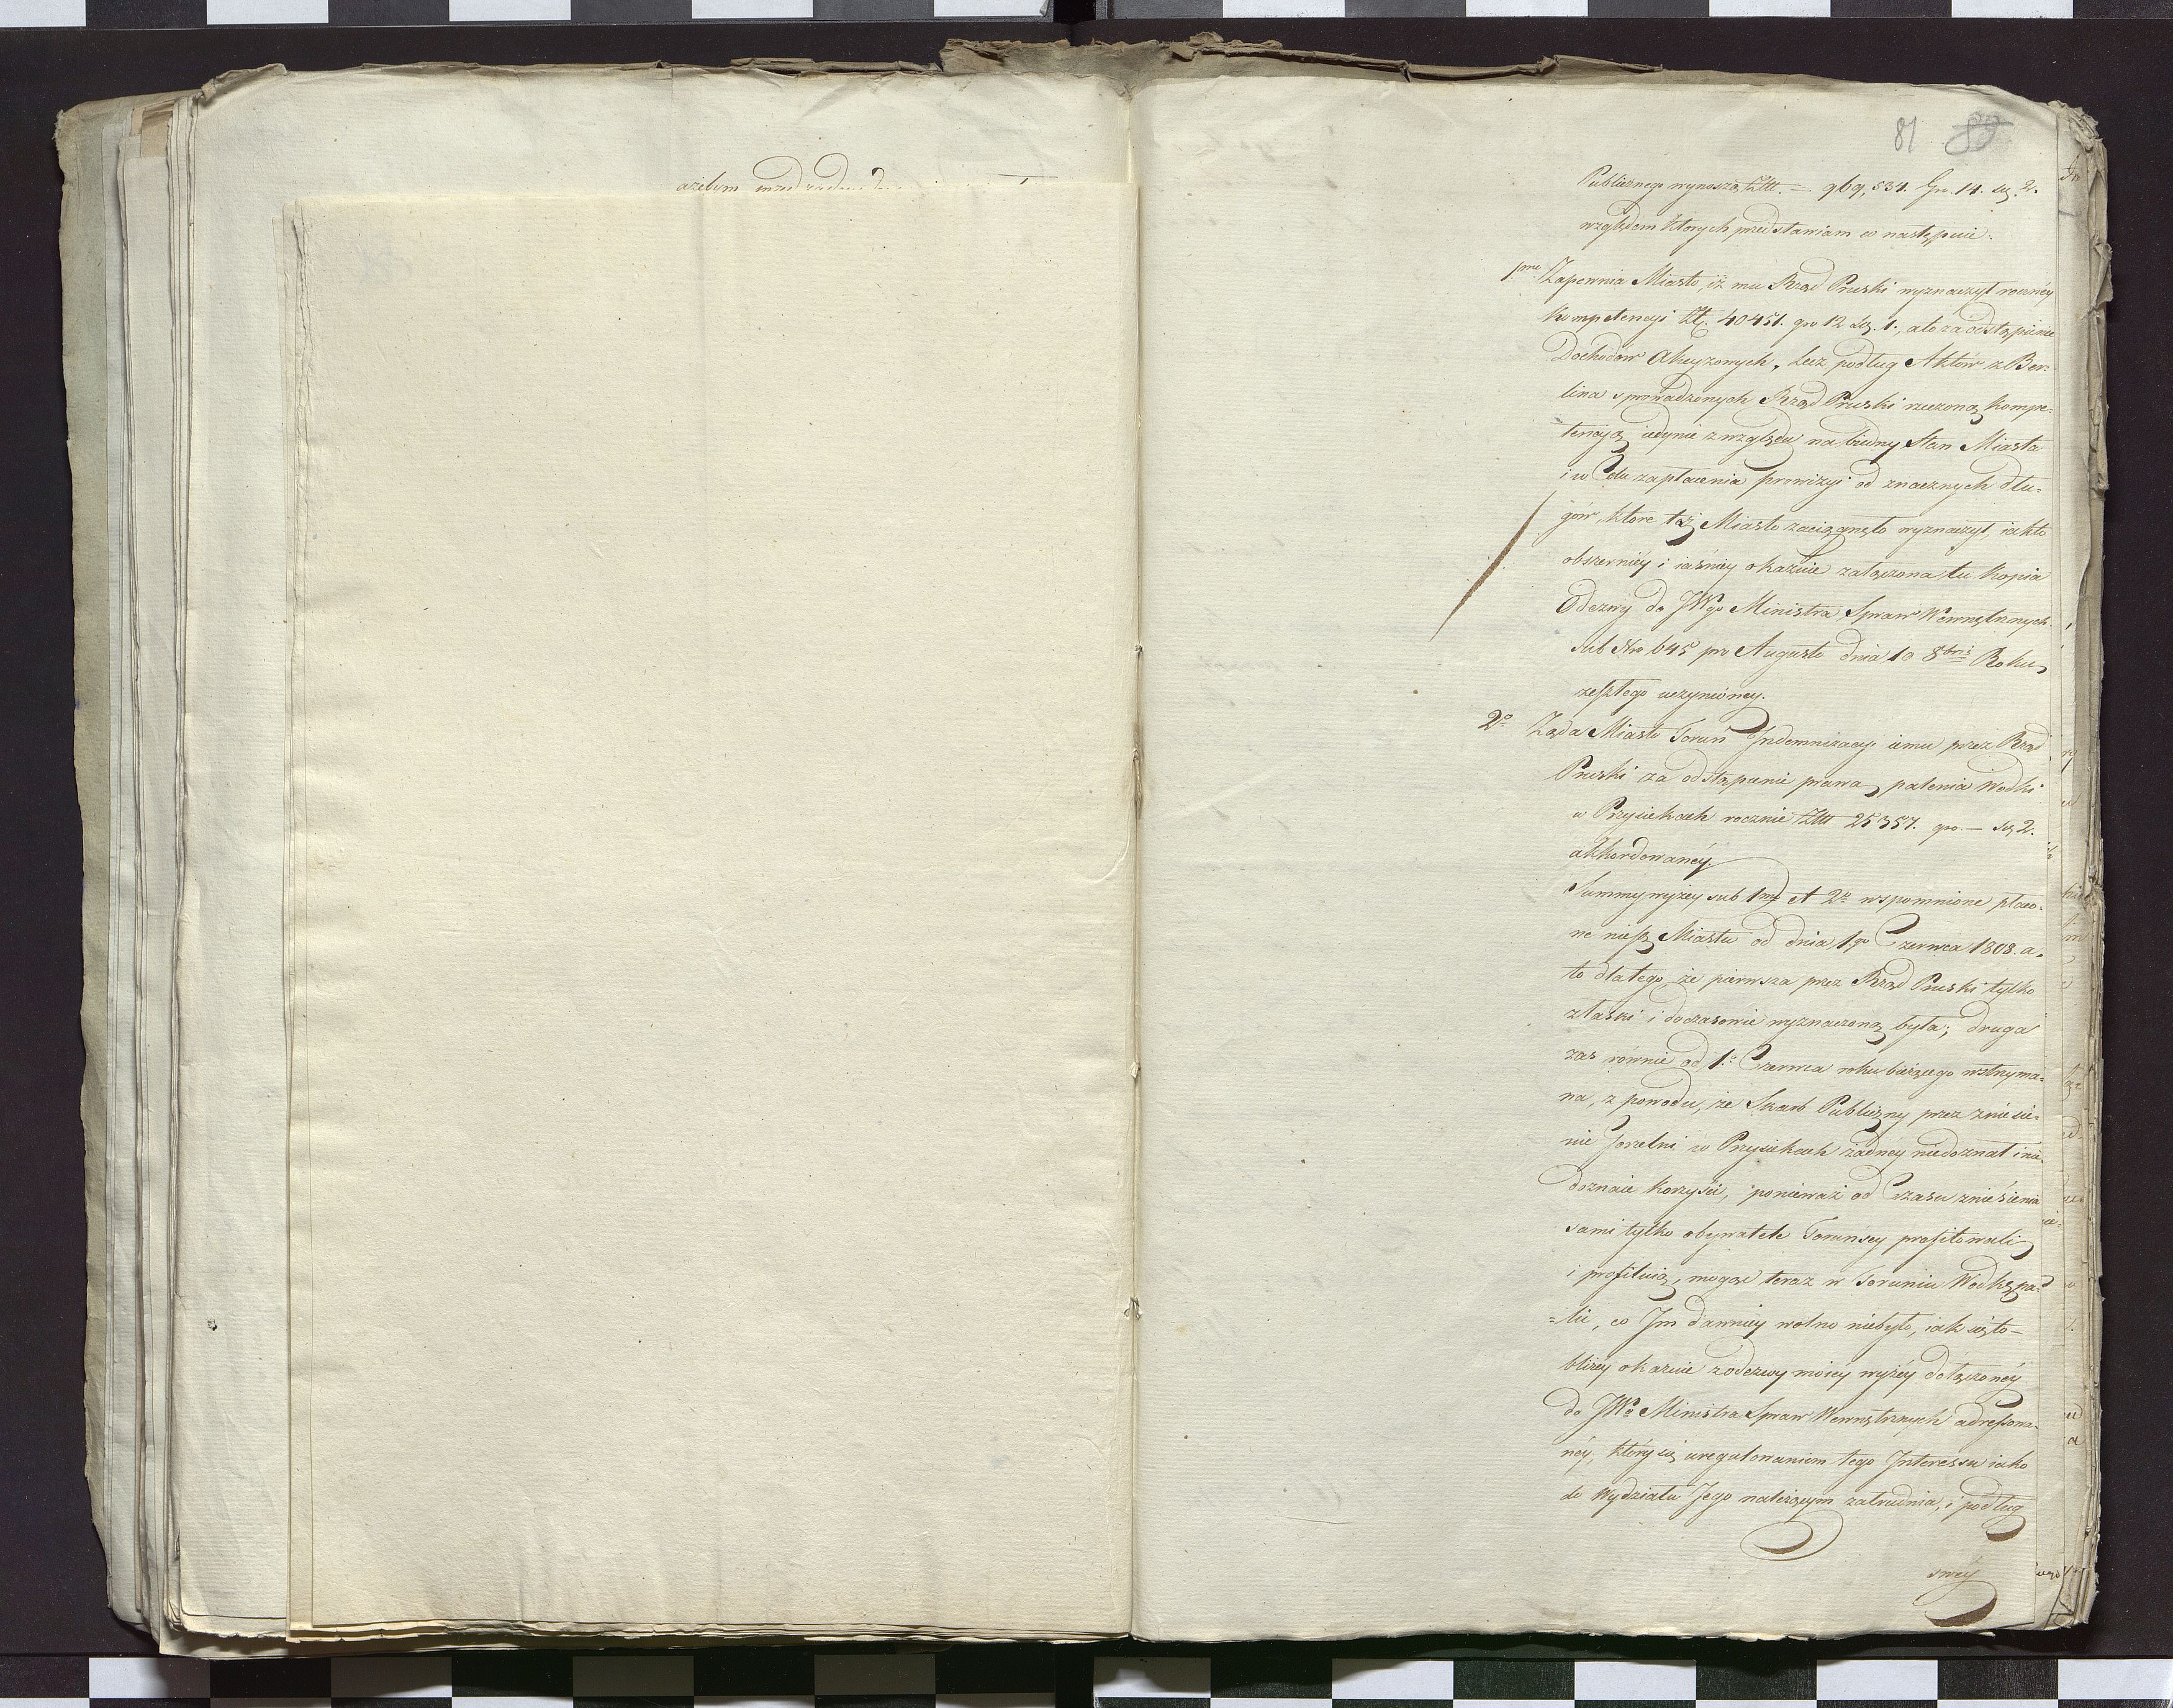 ażebym
81 89
Publicznego wynoszą Złtt. — 969,534. Gr. 14. sz. 2.
względem których przedstawiam co następuie.
1mo Zapewnia Miasto, iż mu Rząd Pruski wyznaczył roczney
kompetencyi Zł. 40451. gr 12 sz. 1., ale za odstąpienie
Dochodów Akcyzonych, lecz podług Aktów z Ber-
lina sprowadzonych Rząd Pruski rzeczoną kompe-
tencyą iedynie z względu na biedny Stan Miasta
i w Celu zapłacenia prowizyi od znacznych dłu-
gów, ktore toż Miasto zaciągnęło wyznaczył, iak to
obszerniéy i iaśniey okazuie załączona tu kopia
Odezwy do JWgo Ministra Spraw Wewnętrznych
sub Nro 645 pro Augusto dnia 10 8bris Roku
zeszłego uczynioney.
2o Żąda Miasto Toruń Indemnizacyi iemu przez Rząd
Pruski za odstąpienie prawa palenia Wodki
w Przysiekach rocznie Złtt 25357. gr. — sz 2.
akkordowanéy.
Summy wyżey sub 1mo et 2o wspomnione płaco-
ne niesą Miastu od dnia 1go Czerwca 1808. a
to dlatego, że pierwsza przez Rząd Pruski tylko
z łaski i doczasowie wyznaczoną była; druga
zas równie od 1o Czerwca roku bieżącego wstrzyma-
na, z powodu, że Skarb Publiczny przez zniesie-
nie Gorzelni w Przysiekach żadney niedoznał i nie
doznaie korzyści, ponieważ od Czasu zniesienia
sami tylko obywatele Toruńscy profitowali
i profituią, mogąc teraz w Toruniu Wodkę pa-
=lić, co Im dawniey wolno niebyło, iak się to
bliżey okazuie z odezwy moiey wyżéy dołączonéy
do JWo Ministra Spraw Wewnętrznych adressowa-
néy, który się uregulowaniem tego Interessu iako
do Wydziału Jego należącym zatrudnia, i podług
swey